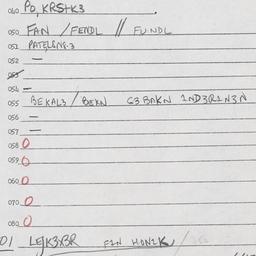 060 PO, KRStK3
050 FAN / FENDL // FUNDL
051 PATELSNG.3
052 —
053
054 —
055 BEKAL3 / BEKN G3BAKN IND3RIN3N
056 —
057 —
058 0
059 0
060 0
070 0
080 0
01 LEJK3X3R FIN HON2K /